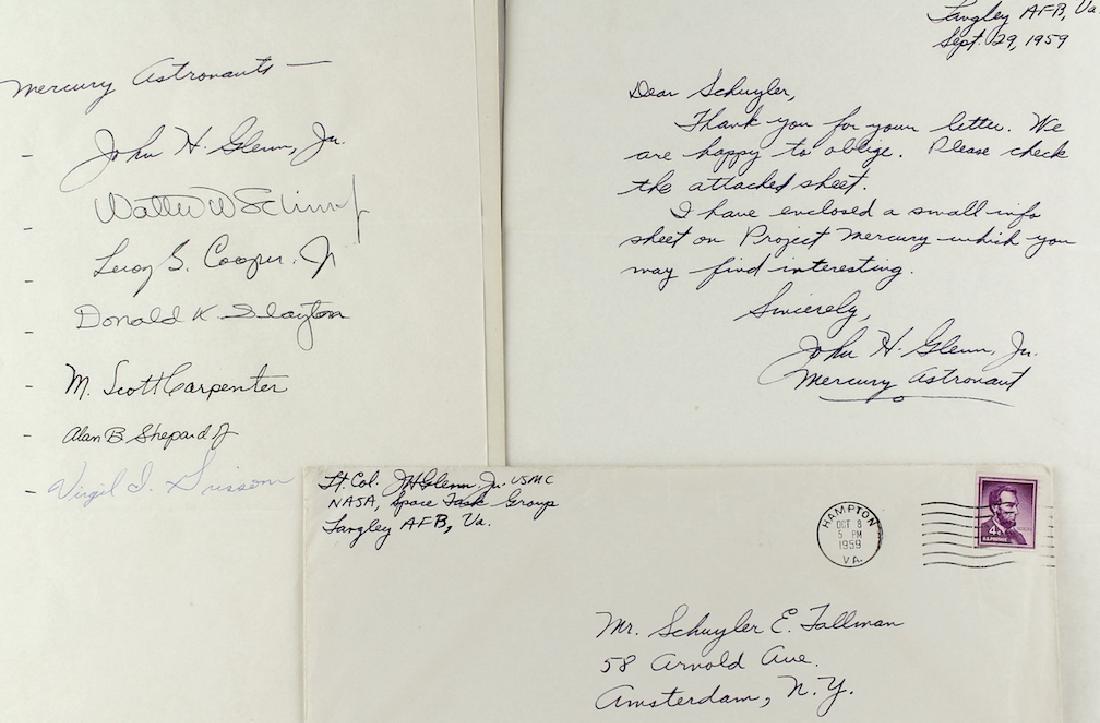 Mercury Astronauts —
- John H. Glenn, Jr.
- Walter M Schirra Jr
- Leroy G. Cooper. Jr
- Donald K Slayton
- M. Scott Carpenter
- Alan B Shepard Jr
- Virgil I. Grissom
Langley AFB, Va.
Sept. 29, 1959
Dear Schuyler,
Thank you for your letter. We
are happy to oblige. Please check
the attached sheet.
I have enclosed a small info
sheet on Project Mercury which you
may find interesting.
Sincerely,
John H. Glenn, Jr.
Mercury Astronaut
Lt. Col. JH Glenn, Jr. USMC
NASA, Space Task Group
Langley AFB, Va.
HAMPTON
OCT 8
5 PM
1959
VA.
4¢
U.S. POSTAGE
Mr. Schuyler E. Tallman
58 Arnold Ave.
Amsterdam, N.Y.